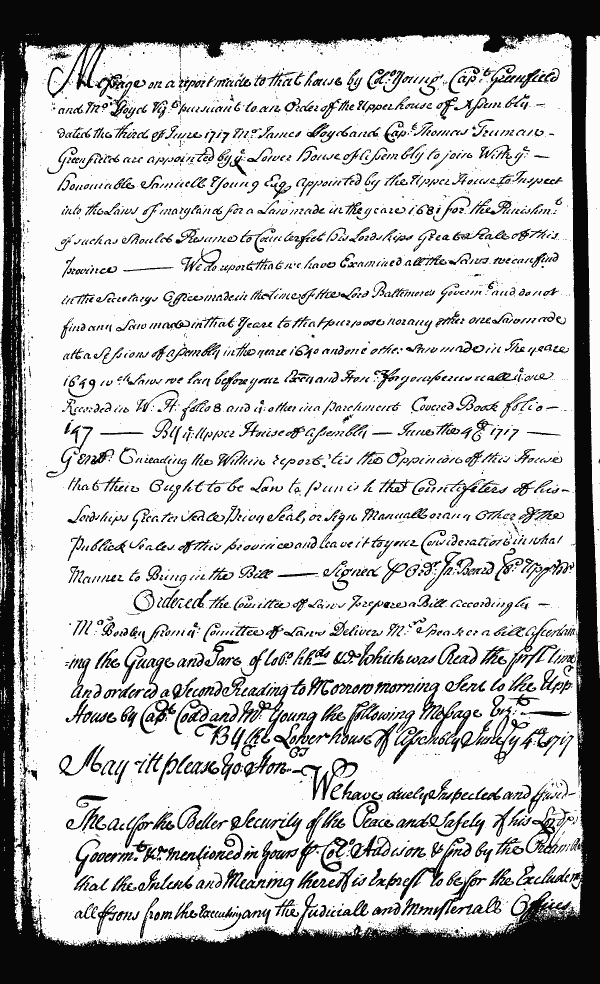 Message on a report made to that house by Coll Young Capt Greenfield
and Mr Lloyd Vizt pursuant to an Order of the Upper house of Assembly
dated the third of June 1717 Mr James Lloyd and Capt Thomas Truman
Greenfield are appointed by ye Lower House of Assembly to join With ye
honourable Samuell Young Esq appointed by the Upper House to Inspect
into the Laws of maryland for a Law made in the yeare 1681 for the Punishmt
of such as Should Presume to Counterfeit his Lordships Great Seale of this
Province — We do report that we have Examined all the Laws we can find
in the Secretarys Office made in the time of the Lord Baltemores Governmt and do not
find any Law made in that Yeare to that purpose nor any other one Law made
att a Sessions of assembly in the yeare 1640 and one other Law made in The yeare
1649 wch Laws we lay before your Excy and Honrs for your perusuall ye one
Recorded in W: H: folio 8 and ye other in a parchment Covered Book folio
147 — By ye Upper House of Assembly — June the 4th 1717 —
Gentn On reading the Within report tis the Oppinion of this House
that their Ought to be Law to punish the Counterfeiters of his
Lordships Greater Seale Privy Seal, or Sign Manuall or any Other of the
Publick Seales of this province and leave it to your Consideration in what
Manner to Bring in the Bill — Signed P Ordr Jn Beard Cl Upp Ho
Ordered the Comittee of Laws Prepare a Bill accordingly
Mr Borden from ye Comittee of Laws Delivers Mr Speaker a bill ascertain
ing the Guage and Tare of tobo hhds &c Which was Read the first time
and ordered a Second Reading to Morrow morning Sent to the Upp
House by Capt Coad and Mr Young the following Message Vizt
By the Lower house of Assembly June ye 4th 1717
May itt please yor Honrs
We have duely Inspected and
The act for the Better Security of the Peace and Safety of his Lordps
Governmt &c mentioned in Yours P Coll Addison & find by the
that the Intent and Meaning thereof is Express to be for the Excludeing
all psons from the Executing any the Judiciall and Ministeriall Offices